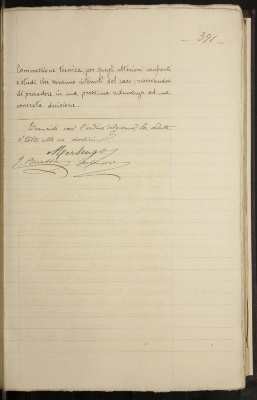 - 391 -
Commissione tecnica per quegli ulteriori confronti
e studi che saranno ritenuti del caso, riservandosi
di procedere in una prossima adunanza ad una
concreta decisione.
Esaurito così l'ordine del giorno la seduta
è tolta alle ore